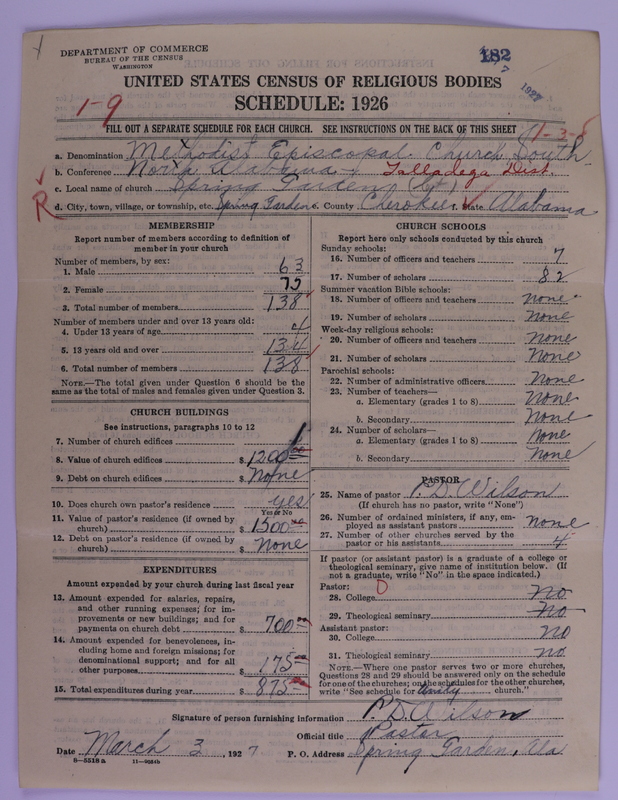 DEPARTMENT OF COMMERCE
BUREAU OF THE CENSUS
WASHINGTON
182
1927
UNITED STATES CENSUS OF RELIGIOUS BODIES
SCHEDULE: 1926
1-9
FILL OUT A SEPARATE SCHEDULE FOR EACH CHURCH. SEE INSTRUCTIONS ON THE BACK OF THIS SHEET
a. Denomination Methodist Episcopal Church, South
b. Conference North Alabama Talladega Dist.
c. Local name of church Spring Garden
R d. City, town, village, or township, etc. Spring Garden e. County Cherokee f. State Alabama
MEMBERSHIP
Report number of members according to definition of
member in your church
Number of members, by sex:
1. Male 63
2. Female 75
3. Total number of members 138
Number of members under and over 13 years old:
4. Under 13 years of age 4
5. 13 years old and over 134
6. Total number of members 138
NOTE.—The total given under Question 6 should be the
same as the total of males and females given under Question 3.
CHURCH BUILDINGS
See instructions, paragraphs 10 to 12
7. Number of church edifices 1
8. Value of church edifices $ 1200
9. Debt on church edifices $ None
10. Does church own pastor's residence yes
Yes or No
11. Value of pastor's residence (if owned by
church) $ 1500
12. Debt on pastor's residence (if owned by
church) $ None
EXPENDITURES
Amount expended by your church during last fiscal year
13. Amount expended for salaries, repairs,
and other running expenses; for im-
provements or new buildings; and for
payments on church debt $ 700
14. Amount expended for benevolences, in-
cluding home and foreign missions; for
denominational support; and for all
other purposes $ 175
15. Total expenditures during year $ 875
CHURCH SCHOOLS
Report here only schools conducted by this church
Sunday schools:
16. Number of officers and teachers 7
17. Number of scholars 82
Summer vacation Bible schools:
18. Number of officers and teachers none
19. Number of scholars None
Week-day religious schools:
20. Number of officers and teachers None
21. Number of scholars None
Parochial schools:
22. Number of administrative officers None
23. Number of teachers—
a. Elementary (grades 1 to 8) None
b. Secondary None
24. Number of scholars—
a. Elementary (grades 1 to 8) None
b. Secondary None
PASTOR
25. Name of pastor P. D. Wilson
(If church has no pastor, write "None")
26. Number of ordained ministers, if any, em-
ployed as assistant pastors none
27. Number of other churches served by the
pastor or his assistants 4
If pastor (or assistant pastor) is a graduate of a college or
theological seminary, give name of institution below. (If
not a graduate, write "No" in the space indicated.)
Pastor:
28. College No
29. Theological seminary No
Assistant pastor:
30. College No
31. Theological seminary no
NOTE.—Where one pastor serves two or more churches,
Questions 28 and 29 should be answered only on the schedule
for one of the churches; on the schedules for the other churches,
write "See schedule for Unity church."
Signature of person furnishing information P. D. Wilson
Official title Pastor
Date March 3, 1927 P. O. Address Spring Garden, Ala
8—5518a 11—9024b